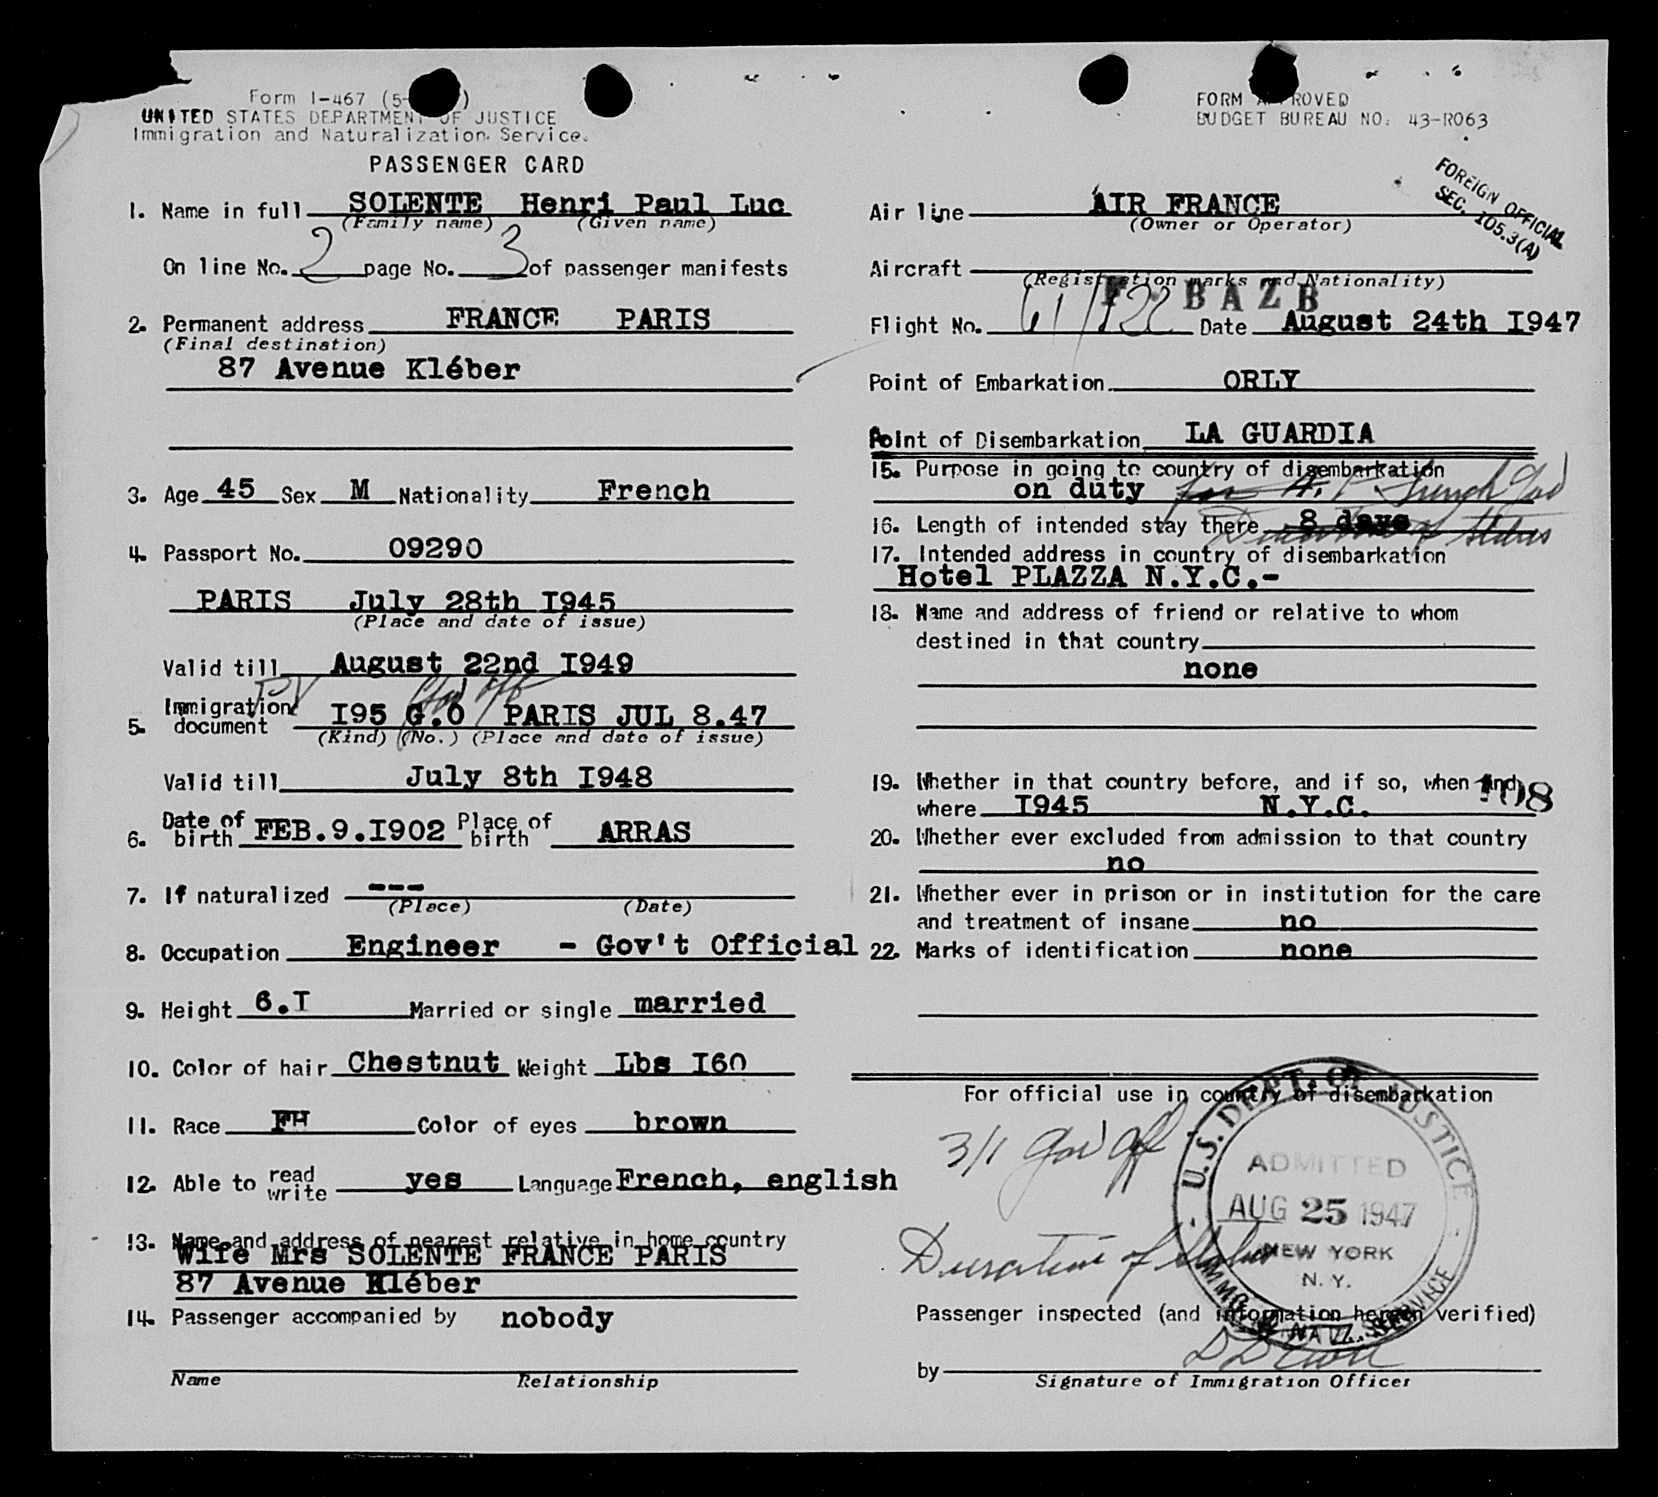 Form I-467 (5-
UNITED STATES DEPARTMENT OF JUSTICE
Immigration and Naturalization Service.
PASSENGER CARD
FORM APPROVED
BUDGET BUREAU NO. 43-R063
FOREIGN OFFICIAL
SEC. 105.3(A)
1. Name in full SOLENTE Henri Paul Luc
(Family name) (Given name)
On line No. 2 page No. 3 of passenger manifests
2. Permanent address FRANCE PARIS
(Final destination)
87 Avenue Kléber
3. Age 45 Sex M Nationality French
4. Passport No. 09290
PARIS July 28th I945
(Place and date of issue)
Valid till August 22nd I949
5. Immigration document I95 G.O PARIS JUL 8.47
Gov off
(Kind) (No.) (Place and date of issue)
Valid till July 8th I948
6. Date of birth FEB.9.I902 Place of birth ARRAS
7. If naturalized ---
(Place) (Date)
8. Occupation Engineer - Gov't Official
9. Height 6.I Married or single married
10. Color of hair Chestnut Weight Lbs I60
11. Race FH Color of eyes brown
12. Able to read write yes Language French, english
13. Name and address of nearest relative in home country
Wife Mrs SOLENTE FRANCE PARIS
87 Avenue Kléber
14. Passenger accompanied by nobody
Name Relationship
Air line AIR FRANCE
(Owner or Operator)
Aircraft
(Registration marks and Nationality)
F. BAZB
Flight No. Date August 24th I947
Point of Embarkation ORLY
Point of Disembarkation LA GUARDIA
15. Purpose in going to country of disembarkation
on duty for French Gov
16. Length of intended stay there 8 days
Duration of status
17. Intended address in country of disembarkation
Hotel PLAZZA N.Y.C.-
18. Name and address of friend or relative to whom
destined in that country
none
19. Whether in that country before, and if so, when and
where I945 N.Y.C.
108
20. Whether ever excluded from admission to that country
no
21. Whether ever in prison or in institution for the care
and treatment of insane no
22. Marks of identification none
For official use in country of disembarkation
3/1 Gov off
Duration of status
U.S. DEPT. OF JUSTICE
ADMITTED
AUG 25 1947
NEW YORK
N. Y.
IMMG. & NATZ. SERVICE
Passenger inspected (and information herein verified)
by
Signature of Immigration Officer